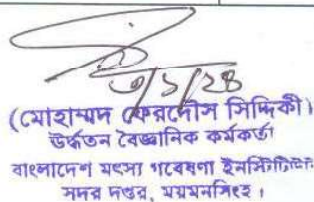 ৩/১/২৪
(মোহাম্মদ ফেরদৌস সিদ্দিকী)
উর্দ্ধতন বৈজ্ঞানিক কর্মকর্তা
বাংলাদেশ মৎস্য গবেষণা ইনস্টিটিউট
সদর দপ্তর, ময়মনসিংহ।